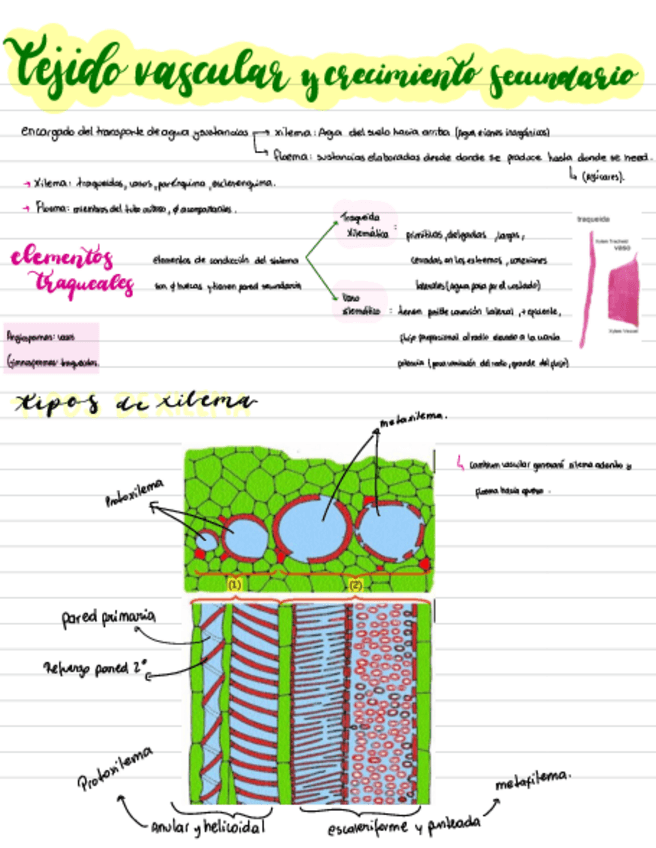 Tejido vascular y crecimiento secundario
encargado del transporte de agua y sustancias
xilema: Agua del suelo hacia arriba (Agua e iones inorgánicos)
floema: sustancias elaboradas desde donde se produce hasta donde se need.
(Azúcares).
→ Xilema: traqueidas, vasos, parénquima, esclerenquima.
→ Floema: miembros del tubo criboso, ¢ acompañantes.
elementos traqueales
elementos de conducción del sistema
son ¢ huecas y tienen pared secundaria
Traqueida
Xilemática:
primitivas, delgadas, largas,
cerradas en los extremos, conexiones
laterales (agua pasa por el costado)
Vaso
xilemático:
tienen posible conexión lateral, + eficiente,
flujo proporcional al radio elevado a la cuarta
potencia (, variación del radio, grande del flujo)
traqueida
Xylem Tracheid
vaso
Xylem Vessel
Angiospermas: vasos
Gimnospermas: traqueidas.
tipos de xilema
TIPOS DE XILEMA
metaxilema.
Protoxilema
cambium vascular generará xilema adentro y
floema hacia afuera.
(1)
(2)
pared primaria
Refuerzo pared 2°
Protoxilema
anular y helicoidal
escaleriforme y punteada
metaxilema.